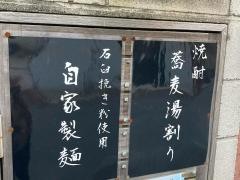 焼酎
蕎麦湯割り
石臼挽き粉使用
自家製麺